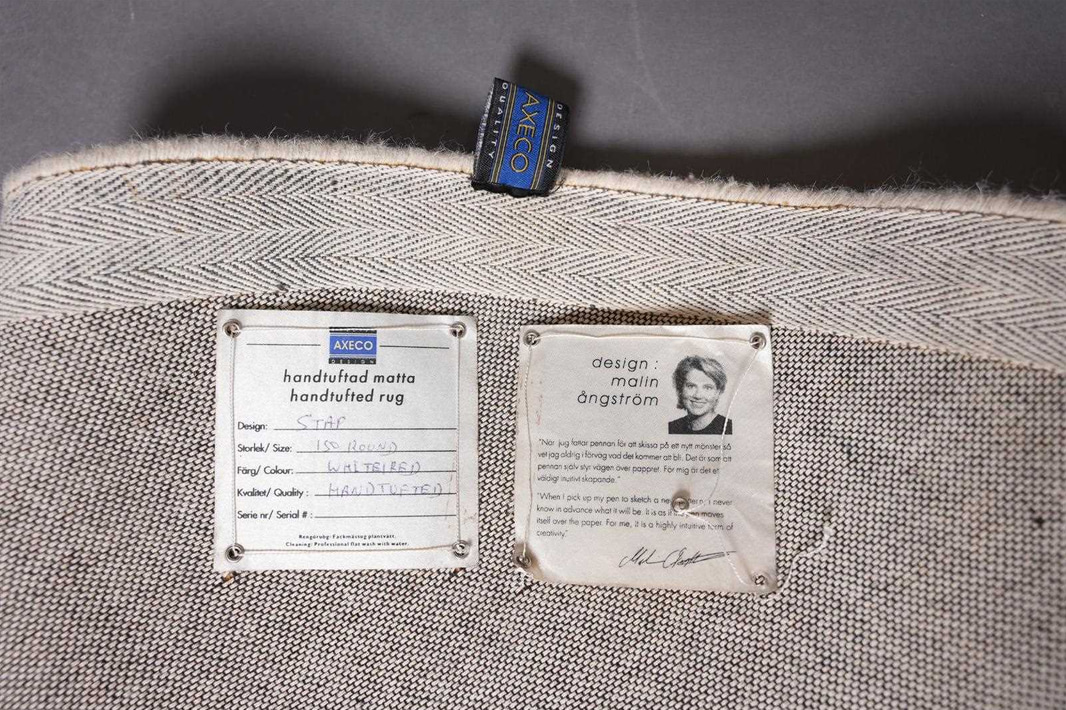 DESIGN
AXECO
QUALITY
AXECO
DESIGN
handtuftad matta
handtufted rug
Design: STAP
Storlek/ Size: 150 ROUND
Färg/ Colour: WHITE/RED
Kvalitet/ Quality : HANDTUFTED
Serie nr/ Serial # :
Rengöring: Fackmässig plantvätt.
Cleaning: Professional flat wash with water.
design :
malin
ångström
"När jug fattar pennan för att skissa på ett nytt mönster så
vet jag aldrig i förväg vad det kommer att bli. Det är som att
pennan själv styr vägen över pappret. För mig är det et
väldigt intuitivt skapande."
"When I pick up my pen to sketch a new pattern, I never
know in advance what it will be. It is as if the pen moves
itself over the paper. For me, it is a highly intuitive form of
creativity."